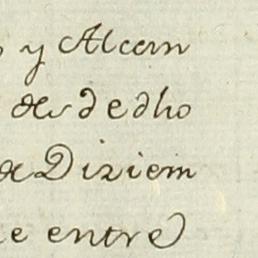 y Alcan
desde dho
de Diziem
e entre